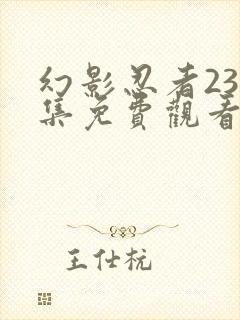 幻影忍者23
集免費觀看
王仕杭